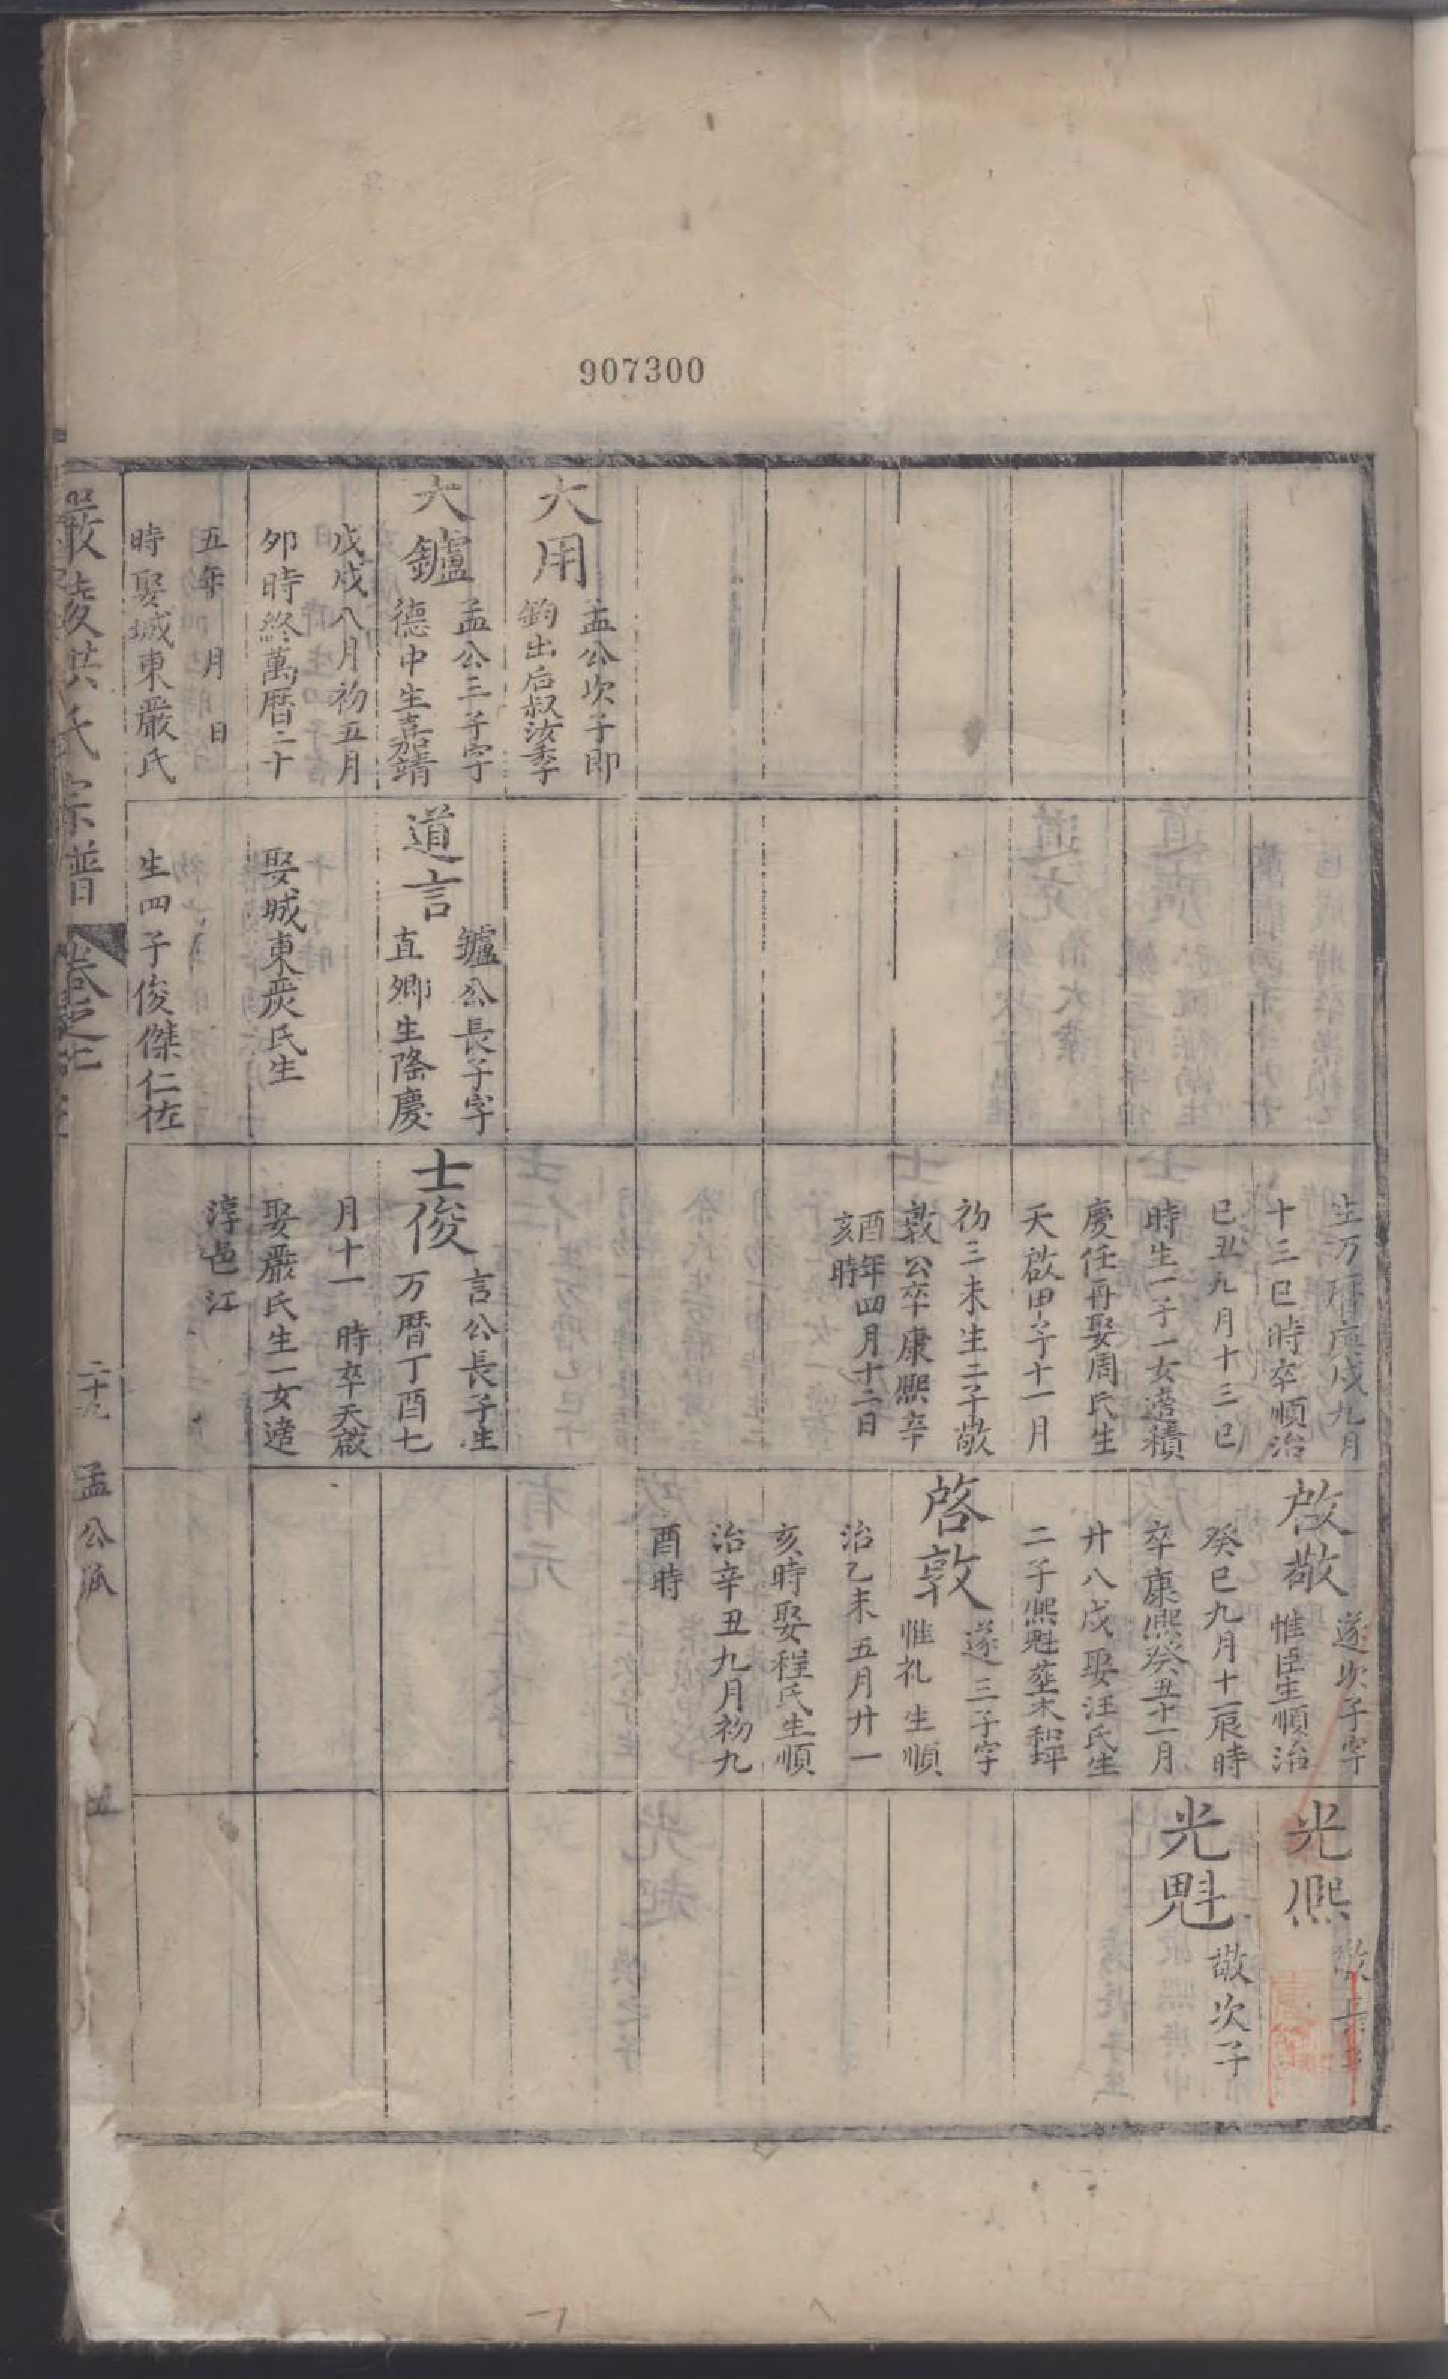 907300
大用
孟公次子即
鈞出后叔汝季
大鑪
孟公三子字
德中生嘉靖
戊戌八月初五月
夘時終萬曆二十
五年 月 日
時娶城東嚴氏
道言
鑪公長子字
直卿生隆慶
娶城東嚴氏生
生四子俊傑仁佐
生万曆庚戌九月
十三巳時卒順治
己丑九月十三巳
時生一子一女適積
慶任再娶周氏生
天啟甲子十一月
初三未生二子敬
敦公卒康熙辛
酉年四月十二日
亥時
士俊
言公長子生
万曆丁酉七
月十一 時卒天啟
娶嚴氏生一女適
淳邑江
啟敬
遂次子字
惟臣生順治
癸巳九月十一辰時
卒康熙癸丑十一月
廿八戌娶汪氏生
二子熙魁
啓敦
遂三子字
惟礼 生順
治乙未五月廿一
亥時娶程氏生順
治辛丑九月初九
酉時
光熙
敬長子
光魁
敬次子
嚴陵洪氏宗譜
卷之
二十九
孟公派